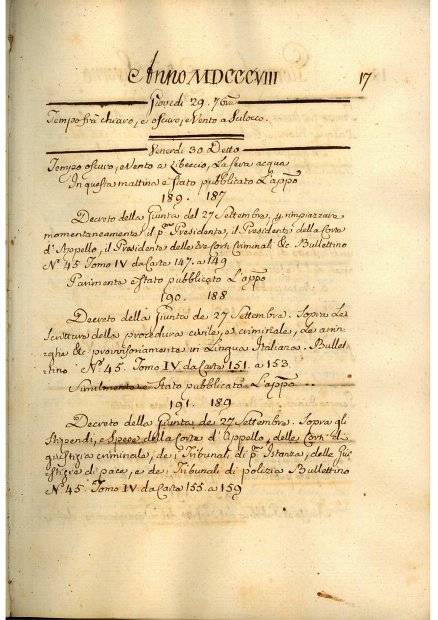 Anno MDCCCVIII 17
Giovedi 29. 7bre
Tempo frà chiaro, e oscuro, e Vento a Scilocco.
Venerdi 30 Detto
Tempo oscuro, e Vento a Libeccio, La sera acqua
In questa mattina è stato pubblicato L'appo
189. 187
Decreto della Giunta del 27 Settembre, rimpiazzare
momentaneamente il po Presidente, il Presidente della Corte
d'Appello, il Presidente delle Corti Criminali &c. Bullettino
No 45 Tomo IV da Carte 147. a 149
Parimente è stato pubblicato L'appo
190. 188
Decreto della Giunta de 27 Settembre. Sopra Le
Scritture della procedura civile, e criminale, Le
& provvisoriamente in Lingua Italiana. Bullet-
tino No 45. Tomo IV da Carte 151. a 153.
Finalmente è Stato pubblicato L'appo
191. 189
Decreto della Giunta de 27 Settembre. Sopra gli
Stipendi, e Spese della Corte d'Appello, delle Corti di
giustizia criminale, de i Tribunali di pa Istanza, delle Giu
stizie di pace, e de i Tribunali di polizia Bullettino
No 45. Tomo IV da Carte 155. a 159